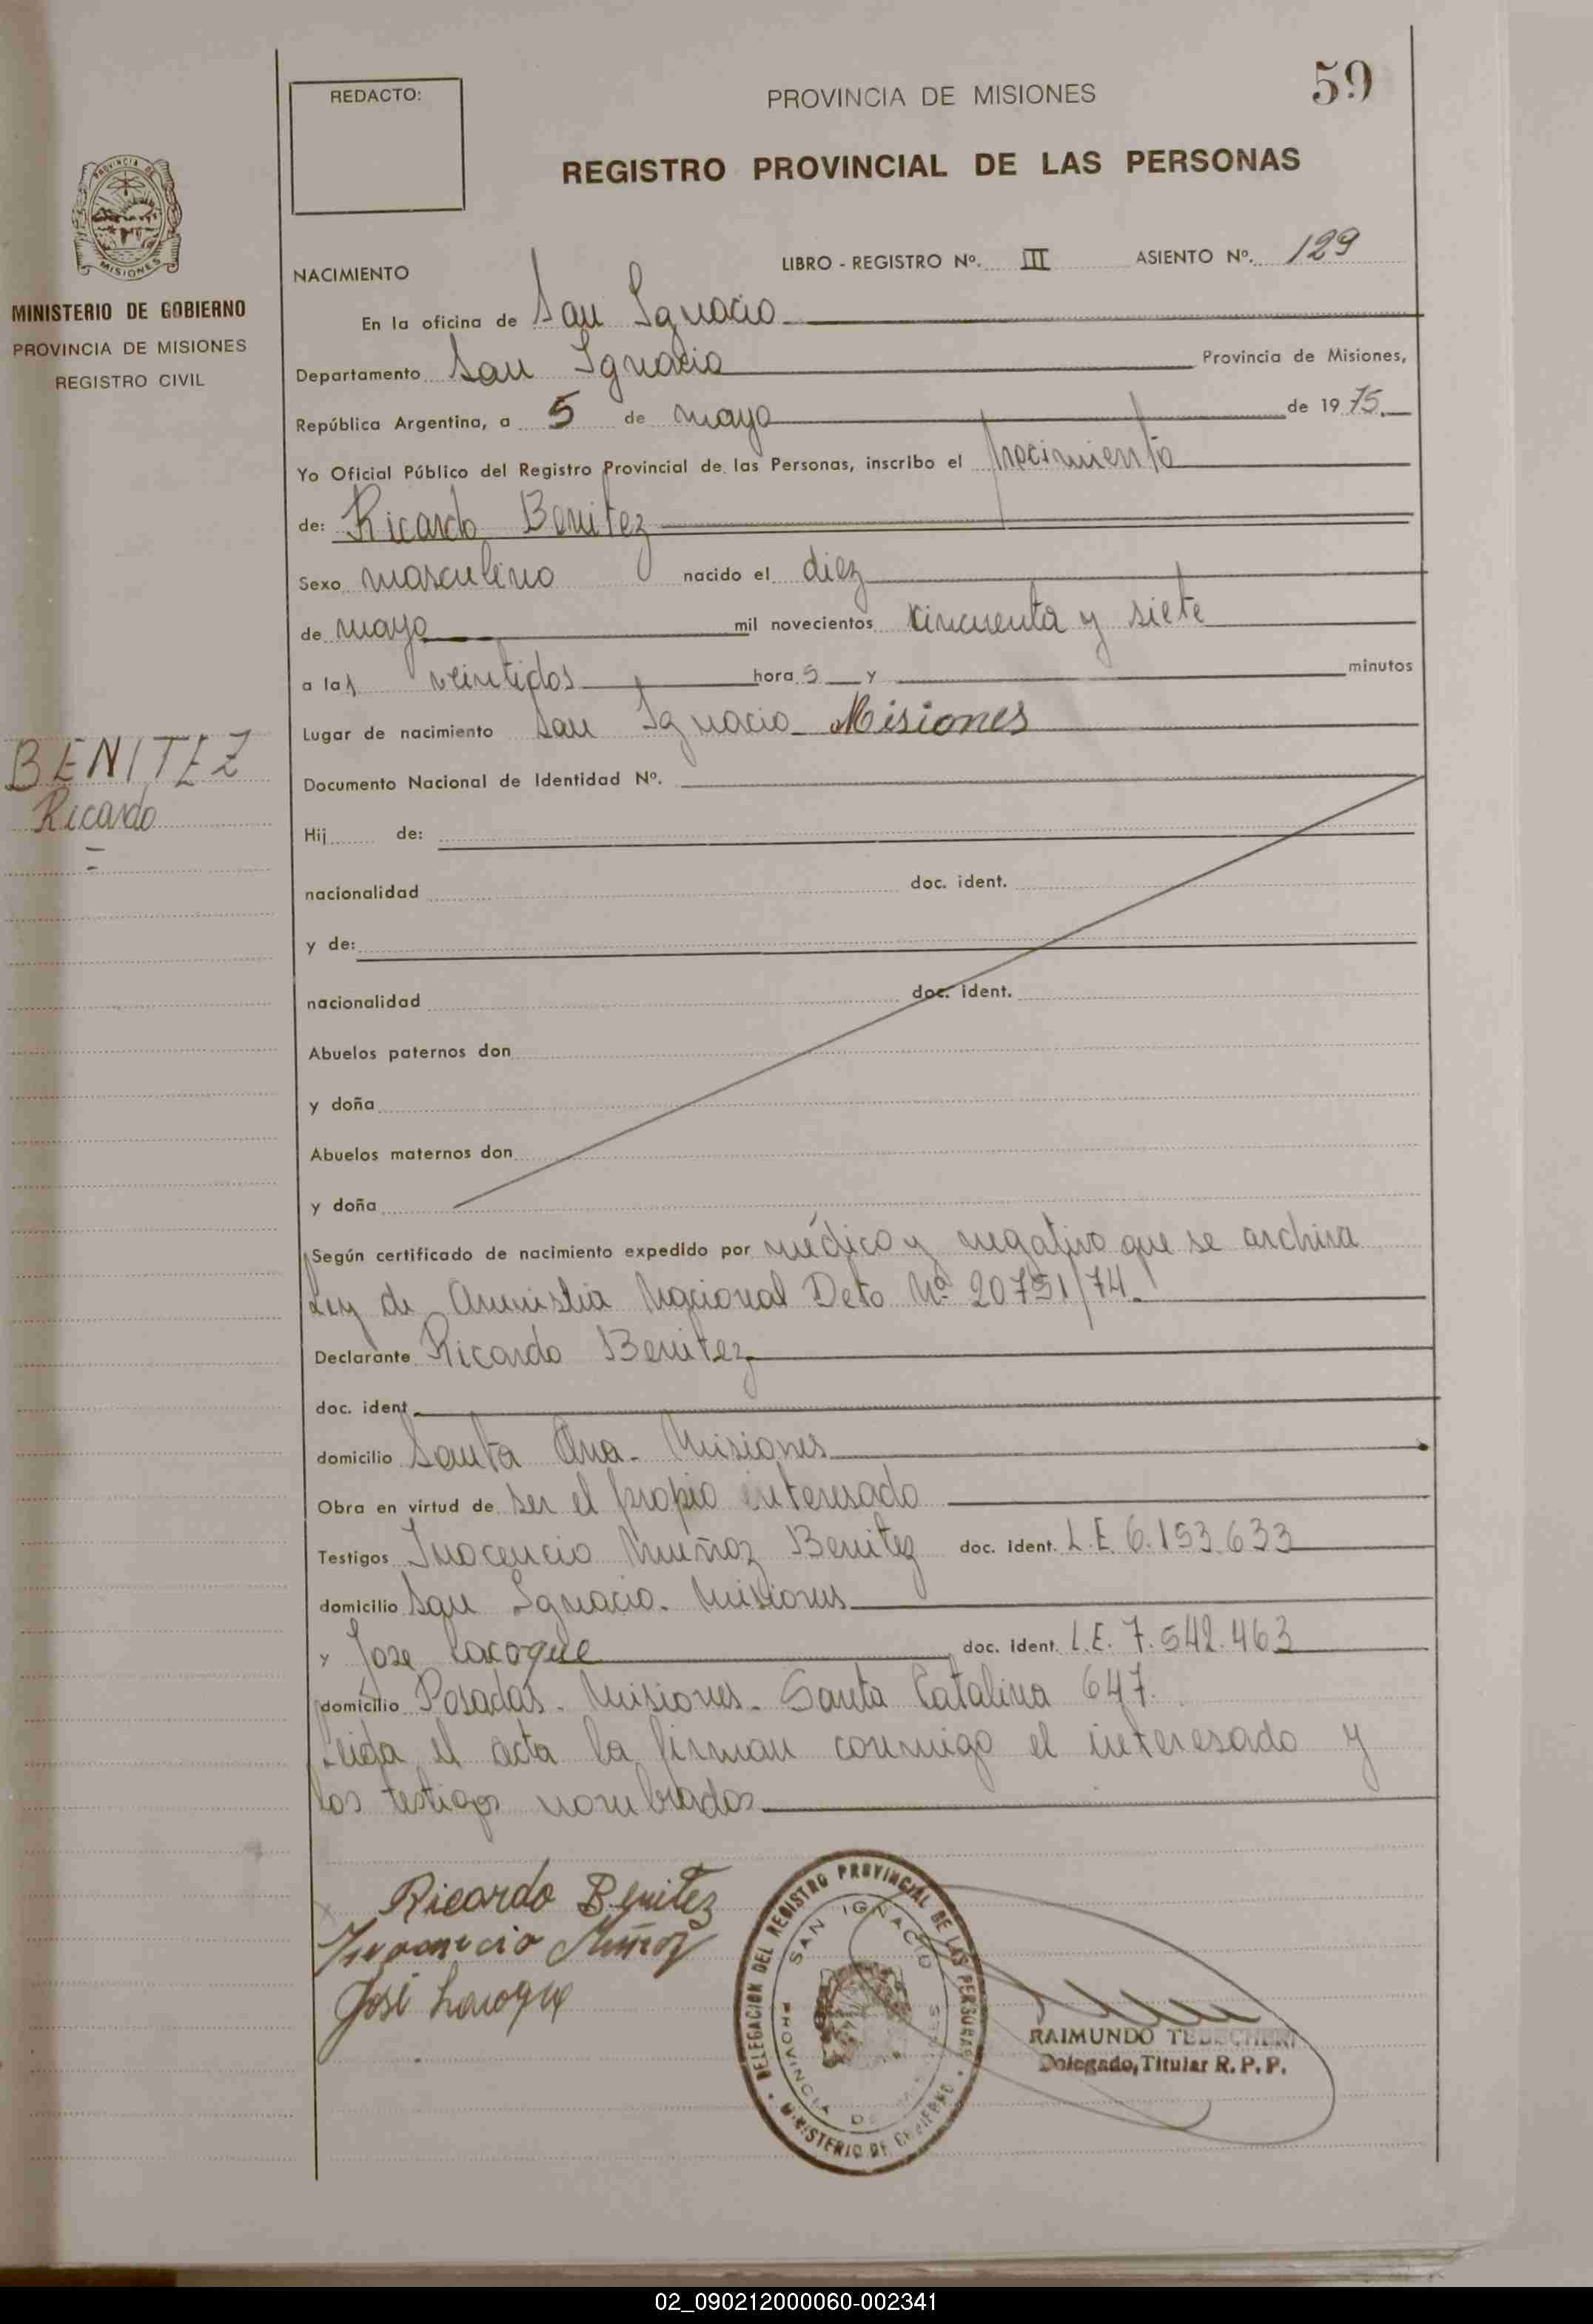 59
REDACTO:
PROVINCIA DE MISIONES
REGISTRO PROVINCIAL DE LAS PERSONAS
PROVINCIA DE
MISIONES
MINISTERIO DE GOBIERNO
PROVINCIA DE MISIONES
REGISTRO CIVIL
BENITEZ
Ricardo
NACIMIENTO
LIBRO - REGISTRO Nº. III ASIENTO Nº. 129
En la oficina de San Ignacio
Departamento San Ignacio Provincia de Misiones,
República Argentina, a 5 de mayo de 1975.
Yo Oficial Público del Registro Provincial de las Personas, inscribo el nacimiento
de: Ricardo Benitez
Sexo masculino nacido el diez
de mayo mil novecientos cincuenta y siete
a las veintidos horas y minutos
Lugar de nacimiento San Ignacio Misiones
Documento Nacional de Identidad Nº.
Hij de:
nacionalidad doc. ident.
y de:
nacionalidad doc. ident.
Abuelos paternos don
y doña
Abuelos maternos don
y doña
Según certificado de nacimiento expedido por médico y negativo que se archiva
Ley de Amnistia Nacional Deto Nº 20751/74.
Declarante Ricardo Benitez
doc. ident
domicilio Santa Ana - Misiones
Obra en virtud de ser el propio interesado
Testigos Inocencio Muñoz Benitez doc. ident. L.E. 6.153.633
domicilio San Ignacio. Misiones
y Jose Lacoque doc. ident. L.E. 7.542.463
domicilio Posadas - Misiones - Santa Catalina 647.
Leida el acta la firman conmigo el interesado y
los testigos nombrados
Ricardo Benitez
Inocencio Muñoz
José
DELEGACION DEL REGISTRO PROVINCIAL DE LAS PERSONAS
SAN IGNACIO
PROVINCIA DE MISIONES
MINISTERIO DE GOBIERNO
RAIMUNDO
Delegado, Titular R. P. P.
02_090212000060-002341